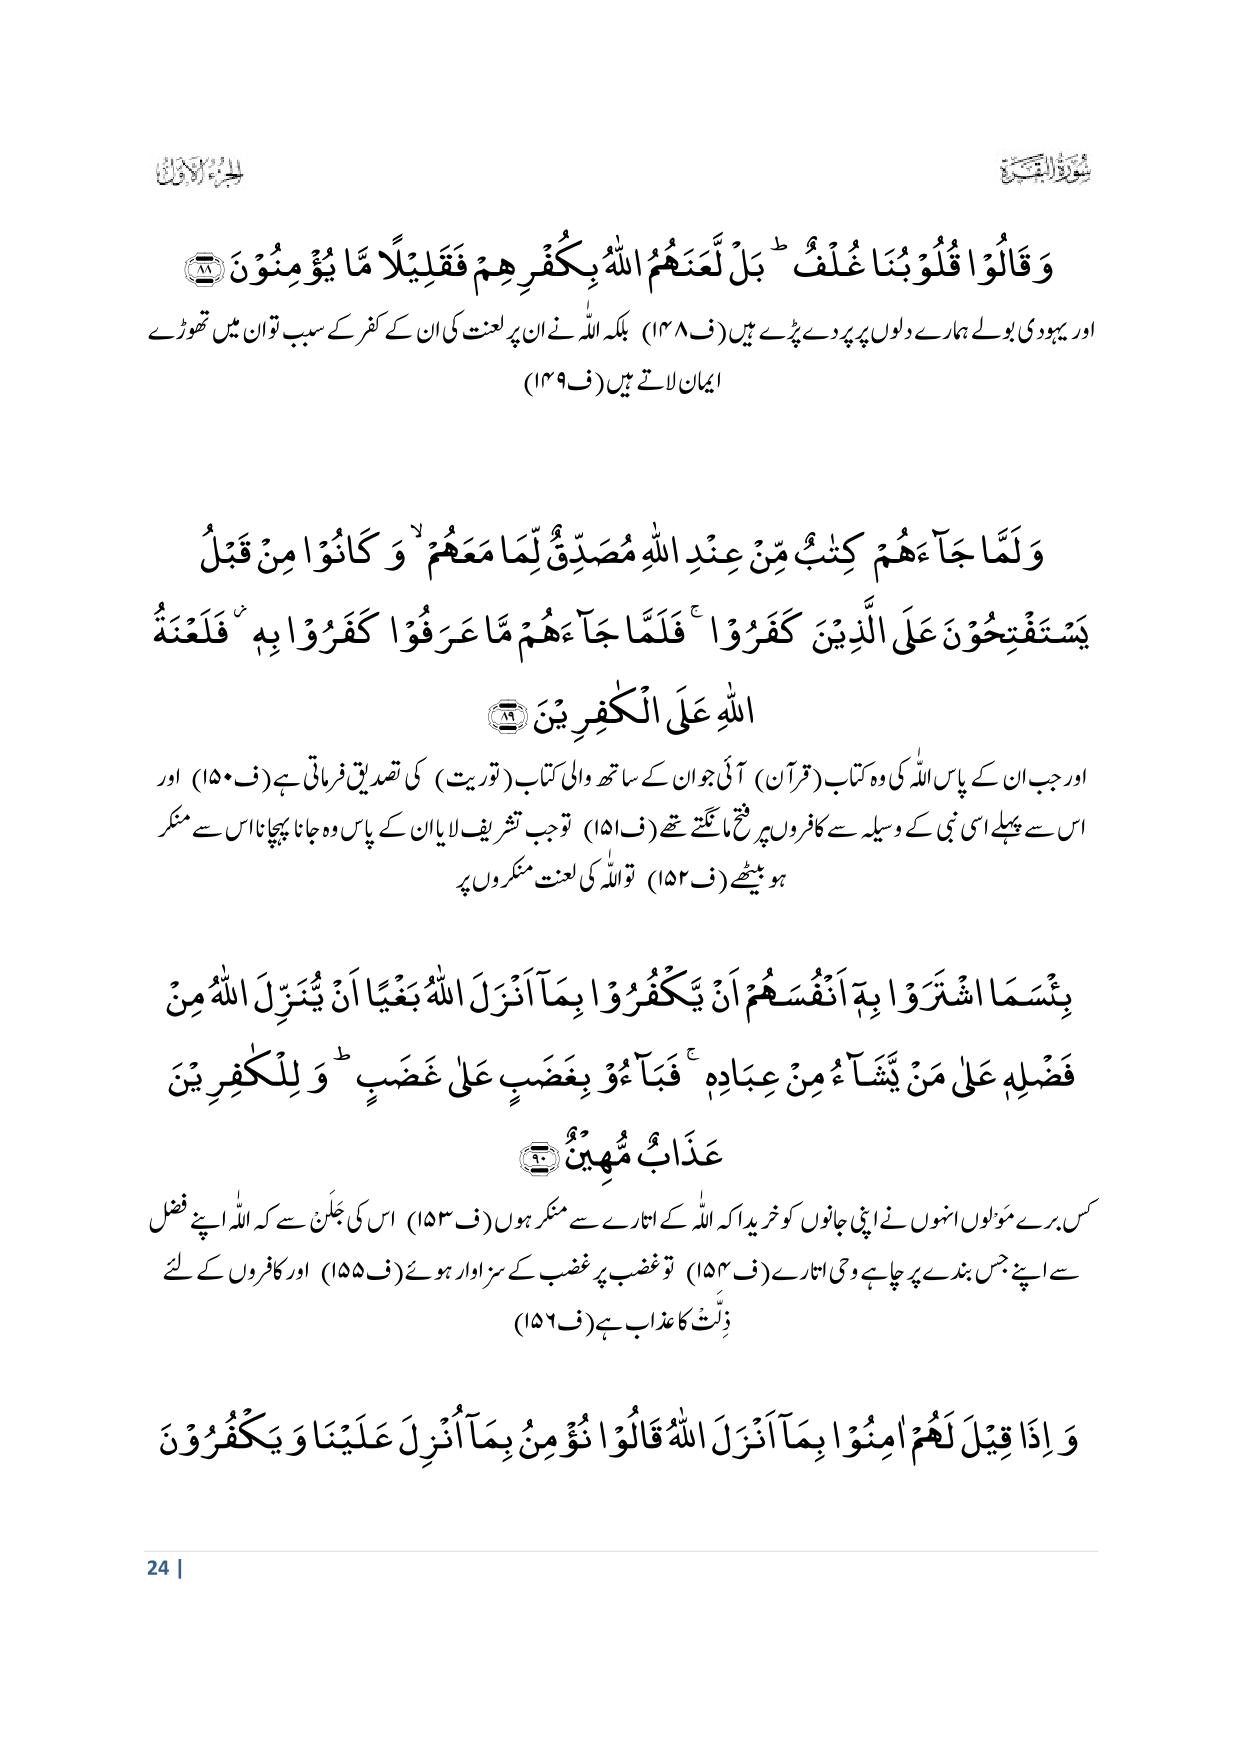 سُوْرَةُ الْبَقَـرَة
الجزء الاوّل
وَ قَالُوْا قُلُوْبُنَا غُلْفٌ ؕ بَلْ لَّعَنَهُمُ اللّٰهُ بِكُفْرِهِمْ فَقَلِیْلًا مَّا یُؤْمِنُوْنَ ﴿۸۸﴾
اور یہودی بولے ہمارے دلوں پر پردے پڑے ہیں(ف۱۴۸) بلکہ اللّٰہ نے ان پر لعنت کی ان کے کفر کے سبب تو ان میں تھوڑے
ایمان لاتے ہیں(ف۱۴۹)
وَ لَمَّا جَآءَهُمْ كِتٰبٌ مِّنْ عِنْدِ اللّٰهِ مُصَدِّقٌ لِّمَا مَعَهُمْ ۙ وَ كَانُوْا مِنْ قَبْلُ
یَسْتَفْتِحُوْنَ عَلَى الَّذِیْنَ كَفَرُوْا ۚ فَلَمَّا جَآءَهُمْ مَّا عَرَفُوْا كَفَرُوْا بِهٖ ؗ فَلَعْنَةُ
اللّٰهِ عَلَى الْكٰفِرِیْنَ ﴿۸۹﴾
اور جب ان کے پاس اللّٰہ کی وہ کتاب(قرآن) آئی جو ان کے ساتھ والی کتاب(توریت) کی تصدیق فرماتی ہے(ف۱۵۰) اور
اس سے پہلے اسی نبی کے وسیلہ سے کافروں پر فتح مانگتے تھے(ف۱۵۱) تو جب تشریف لایا ان کے پاس وہ جانا پہچانا اس سے منکر
ہو بیٹھے(ف۱۵۲) تو اللّٰہ کی لعنت منکروں پر
بِئْسَمَا اشْتَرَوْا بِهٖۤ اَنْفُسَهُمْ اَنْ یَّكْفُرُوْا بِمَاۤ اَنْزَلَ اللّٰهُ بَغْیًا اَنْ یُّنَزِّلَ اللّٰهُ مِنْ
فَضْلِهٖ عَلٰى مَنْ یَّشَآءُ مِنْ عِبَادِهٖ ۚ فَبَآءُوْ بِغَضَبٍ عَلٰى غَضَبٍ ؕ وَ لِلْكٰفِرِیْنَ
عَذَابٌ مُّهِیْنٌ ﴿۹۰﴾
کس برے مَوْلوں انہوں نے اپنی جانوں کو خریدا کہ اللّٰہ کے اتارے سے منکر ہوں(ف۱۵۳) اس کی جَلَنْ سے کہ اللّٰہ اپنے فضل
سے اپنے جس بندے پر چاہے وحی اتارے(ف۱۵۴) تو غضب پر غضب کے سزاوار ہوئے(ف۱۵۵) اور کافروں کے لئے
ذِلَّتْ کا عذاب ہے(ف۱۵۶)
وَ اِذَا قِیْلَ لَهُمْ اٰمِنُوْا بِمَاۤ اَنْزَلَ اللّٰهُ قَالُوْا نُؤْمِنُ بِمَاۤ اُنْزِلَ عَلَیْنَا وَ یَكْفُرُوْنَ
24 |